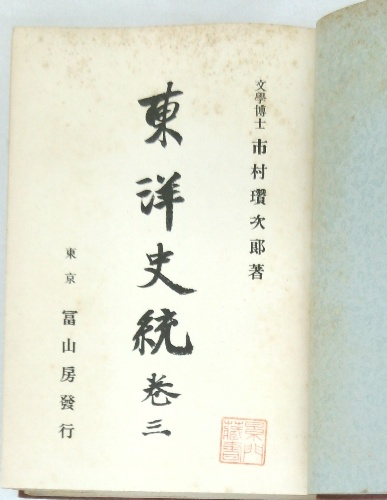 文學博士 市村瓚次郎著
東洋史統 巻三
東京 冨山房發行